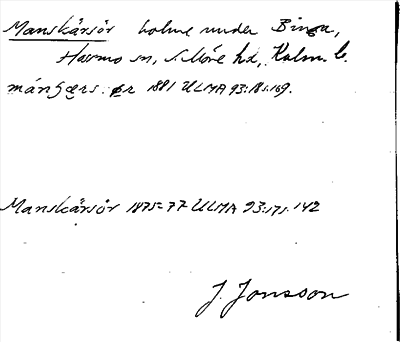 Manskärsör holme under Binga,
Hassmo sn, S. Möre hd, Kalm. l.
1881 ULMA 93:18s.169.
Manskärsör 1875-77 ULMA 93:171.142
J. Jonsson